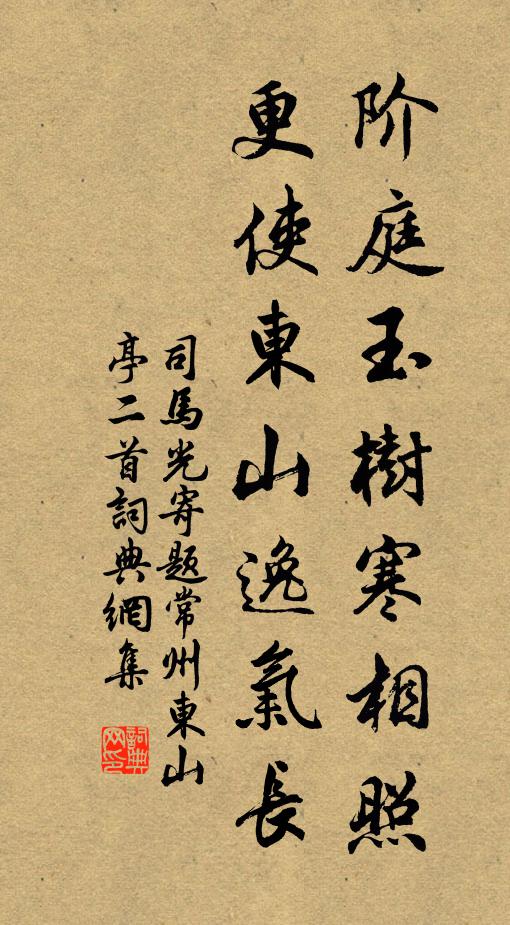 阶庭玉樹寒相照
更使東山逸氣長
司馬光寄題常州東山
亭二首詞典網集
詞典
网印